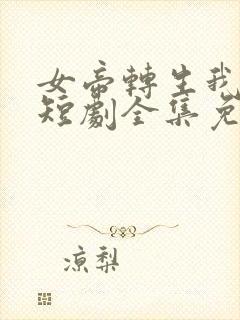 女帝轉生我
短劇全集免
涼梨